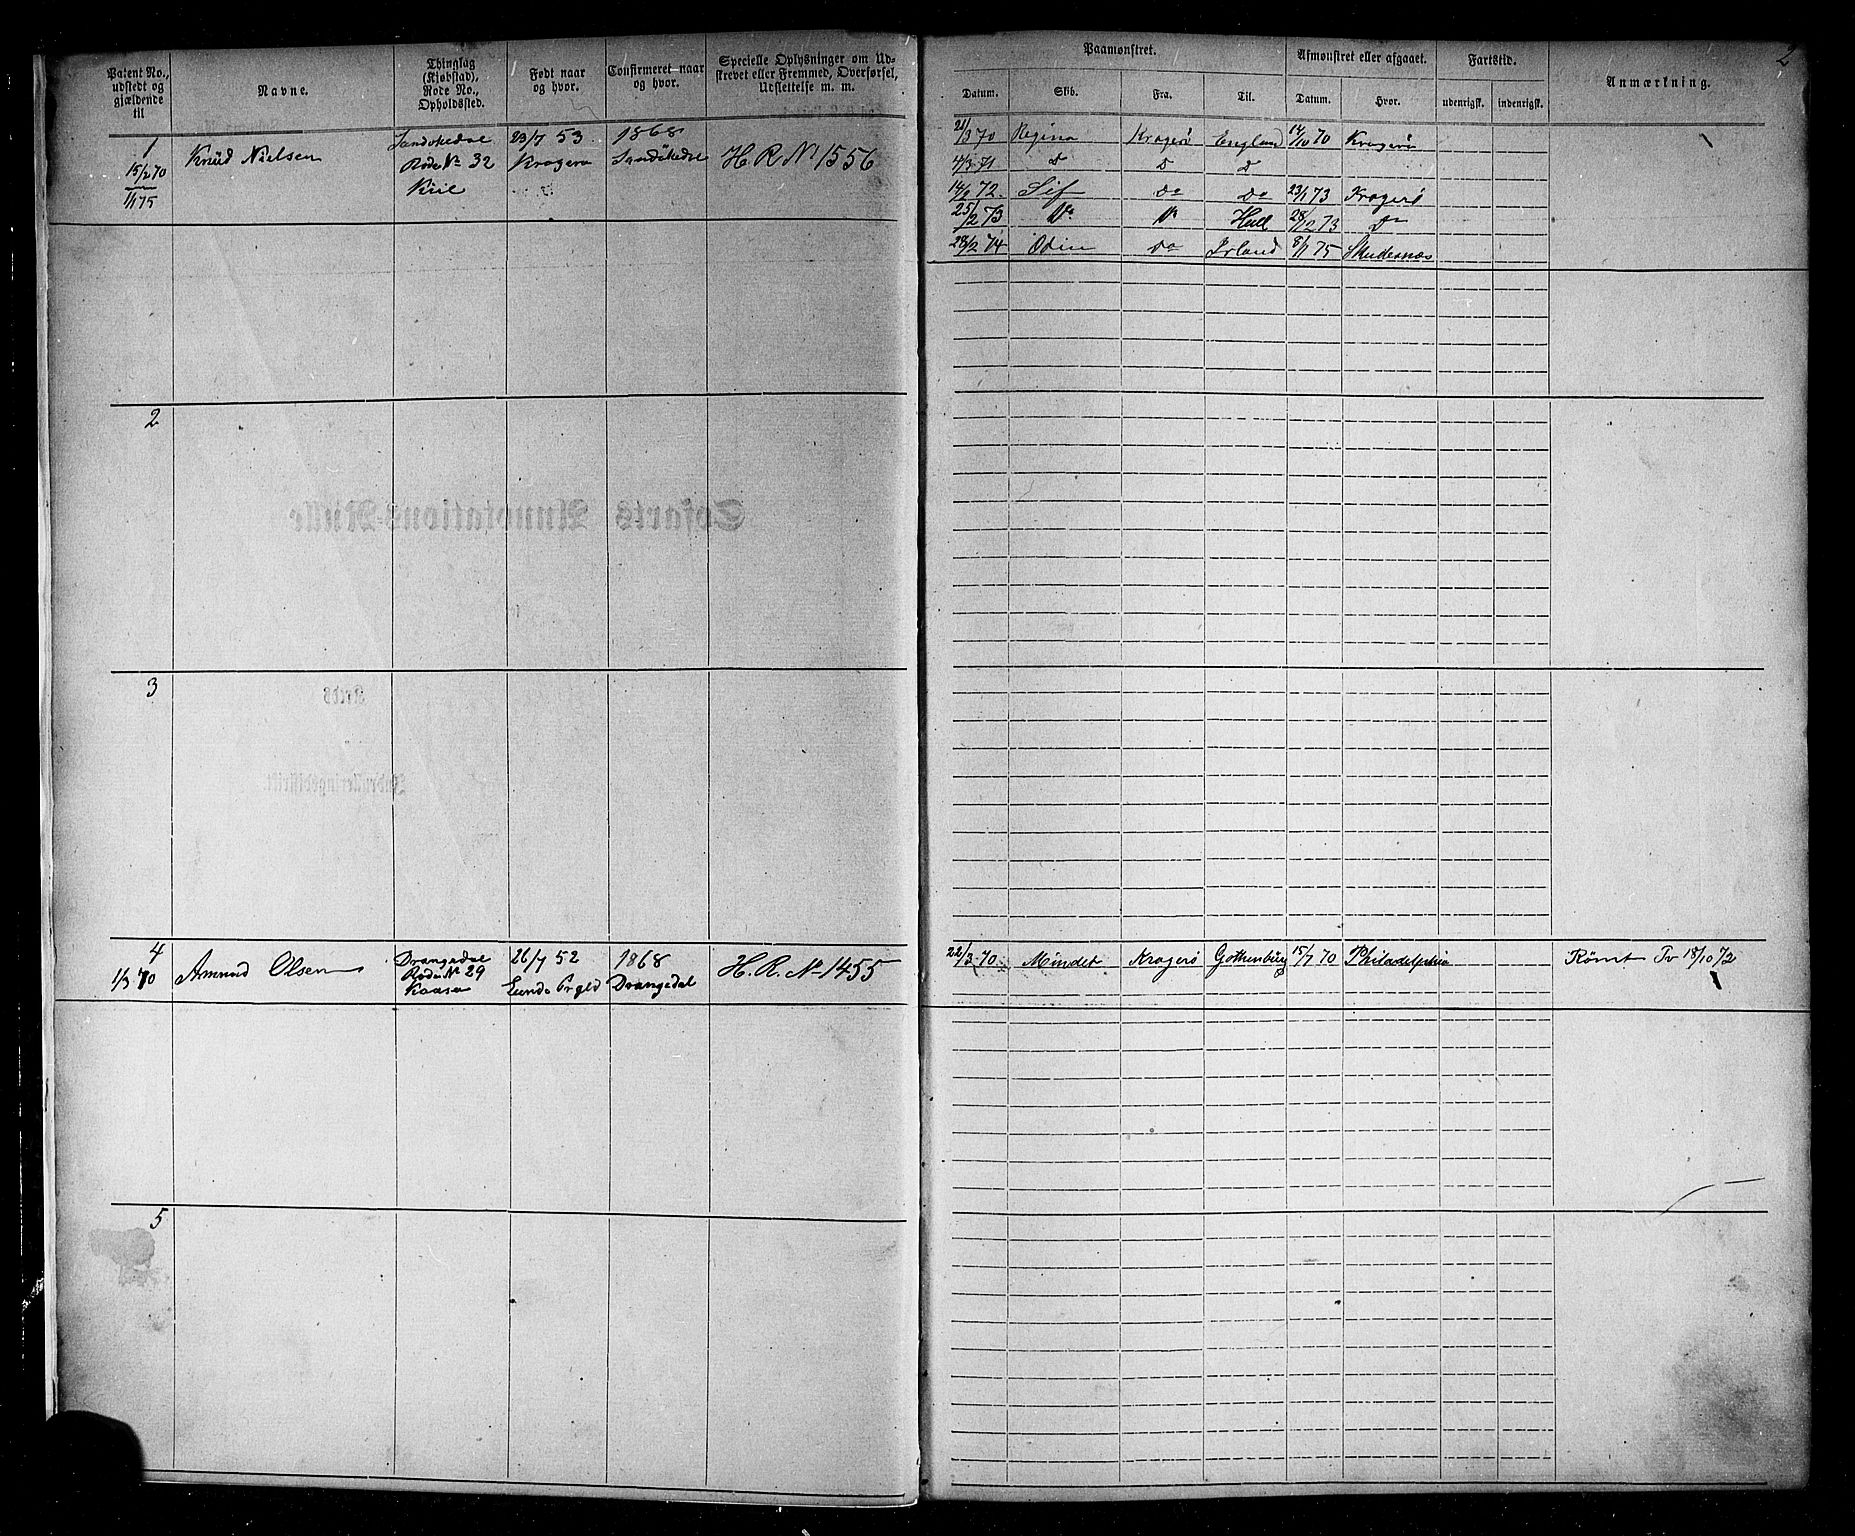 Patent No., udstedt og gjældende til
Navne.
Thinglag (Kjøbstad), Rode No., Opholdssted.
Født naar og hvor.
Confirmeret naar og hvor.
Specielle Oplysninger om Udskrevet eller Fremmed, Overførsel, Udslettelse m. m.
1
15/2 70
1/1 75
Knud Nielsen
Sandøkedal
Rode No 32
Kiil
23/7 53
Kragerø
1868
Sandøkedal
H. R. No 1556
2
3
4
1/3 70
Amund Olsen
Drangedal
Rode No 29
Kaasa
26/7 52
Lunde Prgld
1868
Drangedal
H. R. No 1455
5
2
Paamønstret.
Afmønstret eller afgaaet.
Fartstid.
Anmærkning.
Datum. Skib. Fra. Til. Datum. Hvor. udenrigsk. indenrigsk.
21/3 70 Regina Kragerø England 14/10 70 Kragerø
4/3 71 D D D
14/2 72 Sif Do Do 23/1 73 Kragerø
25/2 73 Do Do Hull 28/12 73 Do
28/2 74 Odin Do Irland 8/1 75 Skudesnæs
22/3 70 Mindet Kragerø Gothenburg 15/7 70 Philadelphia Rømt Pv 18/10 72
Søfarts Annotations-Rulle
Kreds
Indrulleringsdistrikt.